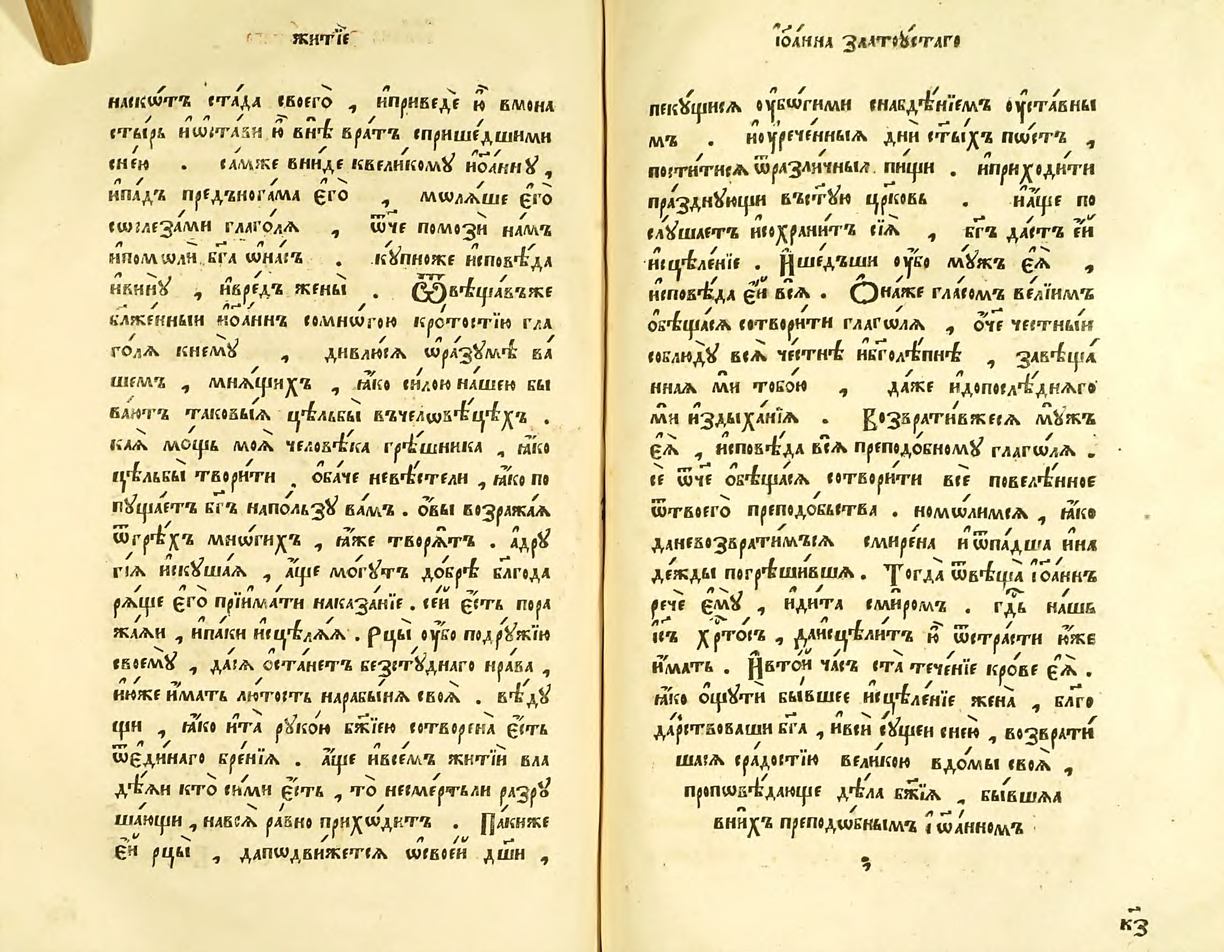 житїѐ
наско́тъ ста́да своего̀ , и҆приведѐ ю҆̀ вмона
сты́рь и҆ѡ҆ста́ви ю҆̀ внѣ̀ вра́тъ сприше́дшими
сне́ю . са́мже вни́де квели́кому і҆ѡа́нну ,
и҆па́дъ предъногама є҆гѡ̀ , мѡлѧ́ше є҆го̀
сѡслеза́ми глаго́лѧ , ѿче помозѝ на́мъ
и҆помѡлѝ бг҃а ѡ҆на́съ . ку́пноже и҆сповѣ́да
и҆вину̀ , и҆вре́дъ жены̀ . Ѿвѣща́въже
блаже́нныи і҆ѡа́ннъ сомно́гою кро́тостїю гла
го́лѧ кнемꙋ̀ , дивлю́сѧ ѡ҆ра́зꙋмѣ ва́
шемъ , мнѧ́щихъ , ꙗ҆́ко си́лою на́шею бы
ва́ютъ таковы́ѧ цѣльбы̀ въчелѡвѣ́цѣхъ .
ка́ѧ мо́щь моѧ̀ человѣ́ка грѣ́шника , ꙗ҆́ко
цѣльбы̀ твори́ти . ѻ҆ба́че невѣ́стели , ꙗ҆́ко по
пꙋща́етъ бг҃ъ напо́льзꙋ ва́мъ . ѻ҆́вы возража́ѧ
ѿгрѣ́хъ мнѡ́гихъ , ꙗ҆̀же творѧ́тъ . а҆дрꙋ
гі́ѧ и҆скꙋша́ѧ , а҆́ще мо́гꙋтъ до́брѣ бл҃года
рѧ́ще є҆го̀ прїима́ти наказа́нїе . се́й є҆́сть пора
жа́ѧи , и҆па́ки и҆сцѣлѧ́ѧ . Рцы̀ ᲂу҆́бо подрꙋ́жїю
своемꙋ̀ , да́сѧ ѻ҆ста́нетъ безстꙋ́днаго нра́ва ,
и҆ю́же и҆́мать лю́тость нарабы́нѧ своѧ̀ . вѣ́дꙋ
щи , ꙗ҆́ко и҆та̀ рꙋко́ю бж҃їею сотворена̀ є҆́сть
ѿє҆ди́наго бре́нїѧ . а҆́ще и҆всѣ́мъ житїѝ вла
дѣ́ѧи кто̀ си́ми є҆́сть , то̀ несмертьли разрꙋ
ша́ющи , навсѧ̀ ра́вно прихо́дитъ . Па́киже
є҆́й рцы̀ , дапѡдви́жетсѧ ѡ҆свое́й дш҃и ,
і҆ѡа́нна златоꙋ́стаго
пекꙋ́щисѧ ᲂу҆бѡ́гими снабдѣ́нїемъ ᲂу҆ста́вны
мъ . и҆ᲂу҆рече́нныѧ днѝ ст҃ы́хъ пѡ́стъ ,
пости́тисѧ ѿразли́чныѧ пи́щи . и҆приходи́ти
пра́зднꙋющи въст҃ꙋ́ю цр҃ковь . и҆а҆́ще по
слꙋ́шаетъ и҆сохрани́тъ сїѧ̀ , бг҃ъ да́стъ є҆́й
и҆сцѣле́нїе . И҆ше́дъши ᲂу҆́бо мꙋ́жъ є҆ѧ̀ ,
и҆сповѣ́да є҆́й всѧ̀ . Ѻ҆на́же гла́сомъ ве́лїимъ
ѻ҆бѣща́сѧ сотвори́ти глаго́лѧ , ѻ҆́че че́стныи
соблюдꙋ̀ всѧ̀ че́стнѣ и҆бг҃олѣ́пнѣ , завѣща́
ннаѧ мѝ тобо́ю , да́же и҆допослѣ́днѧго
мѝ и҆здыха́нїѧ . Возврати́вжесѧ мꙋ́жъ
є҆ѧ̀ , и҆сповѣ́да всѧ̀ преподо́бномꙋ глаго́лѧ .
сѐ ѿче ѻ҆бѣща́сѧ сотвори́ти всѐ повелѣ́нное
ѿтвоего̀ преподо́бьства . номо́лимсѧ , ꙗ҆́ко
даневозврати́мъсѧ смире́на и҆ѿпа́дша и҆на
де́жды погрѣши́вша . Тогда̀ ѿвѣща̀ і҆ѡа́ннъ
речѐ є҆мꙋ̀ , и҆ди́та сми́ромъ . гдⷭ҇ь на́шъ
і҆с҃ъ хрⷭ҇то́съ , даи҆сцѣли́тъ ю҆̀ ѿстра́сти ю҆́же
и҆́мать . И҆вто́й ча́съ ста̀ тече́нїе кро́ве є҆ѧ̀ .
ꙗ҆́ко ѻ҆щꙋтѝ бы́вшее и҆сцѣле́нїе жена̀ , бл҃го
да́рствоваши бг҃а , и҆всѝ сꙋ́щеи сне́ю , возврати́
шасѧ сра́достїю вели́кою вдо́мы своѧ̀ ,
пропѡвѣ́дающе дѣла̀ бж҃їѧ , бы́вшаѧ
вни́хъ преподо́бнымъ і҆ѡа́нномъ
к҃з